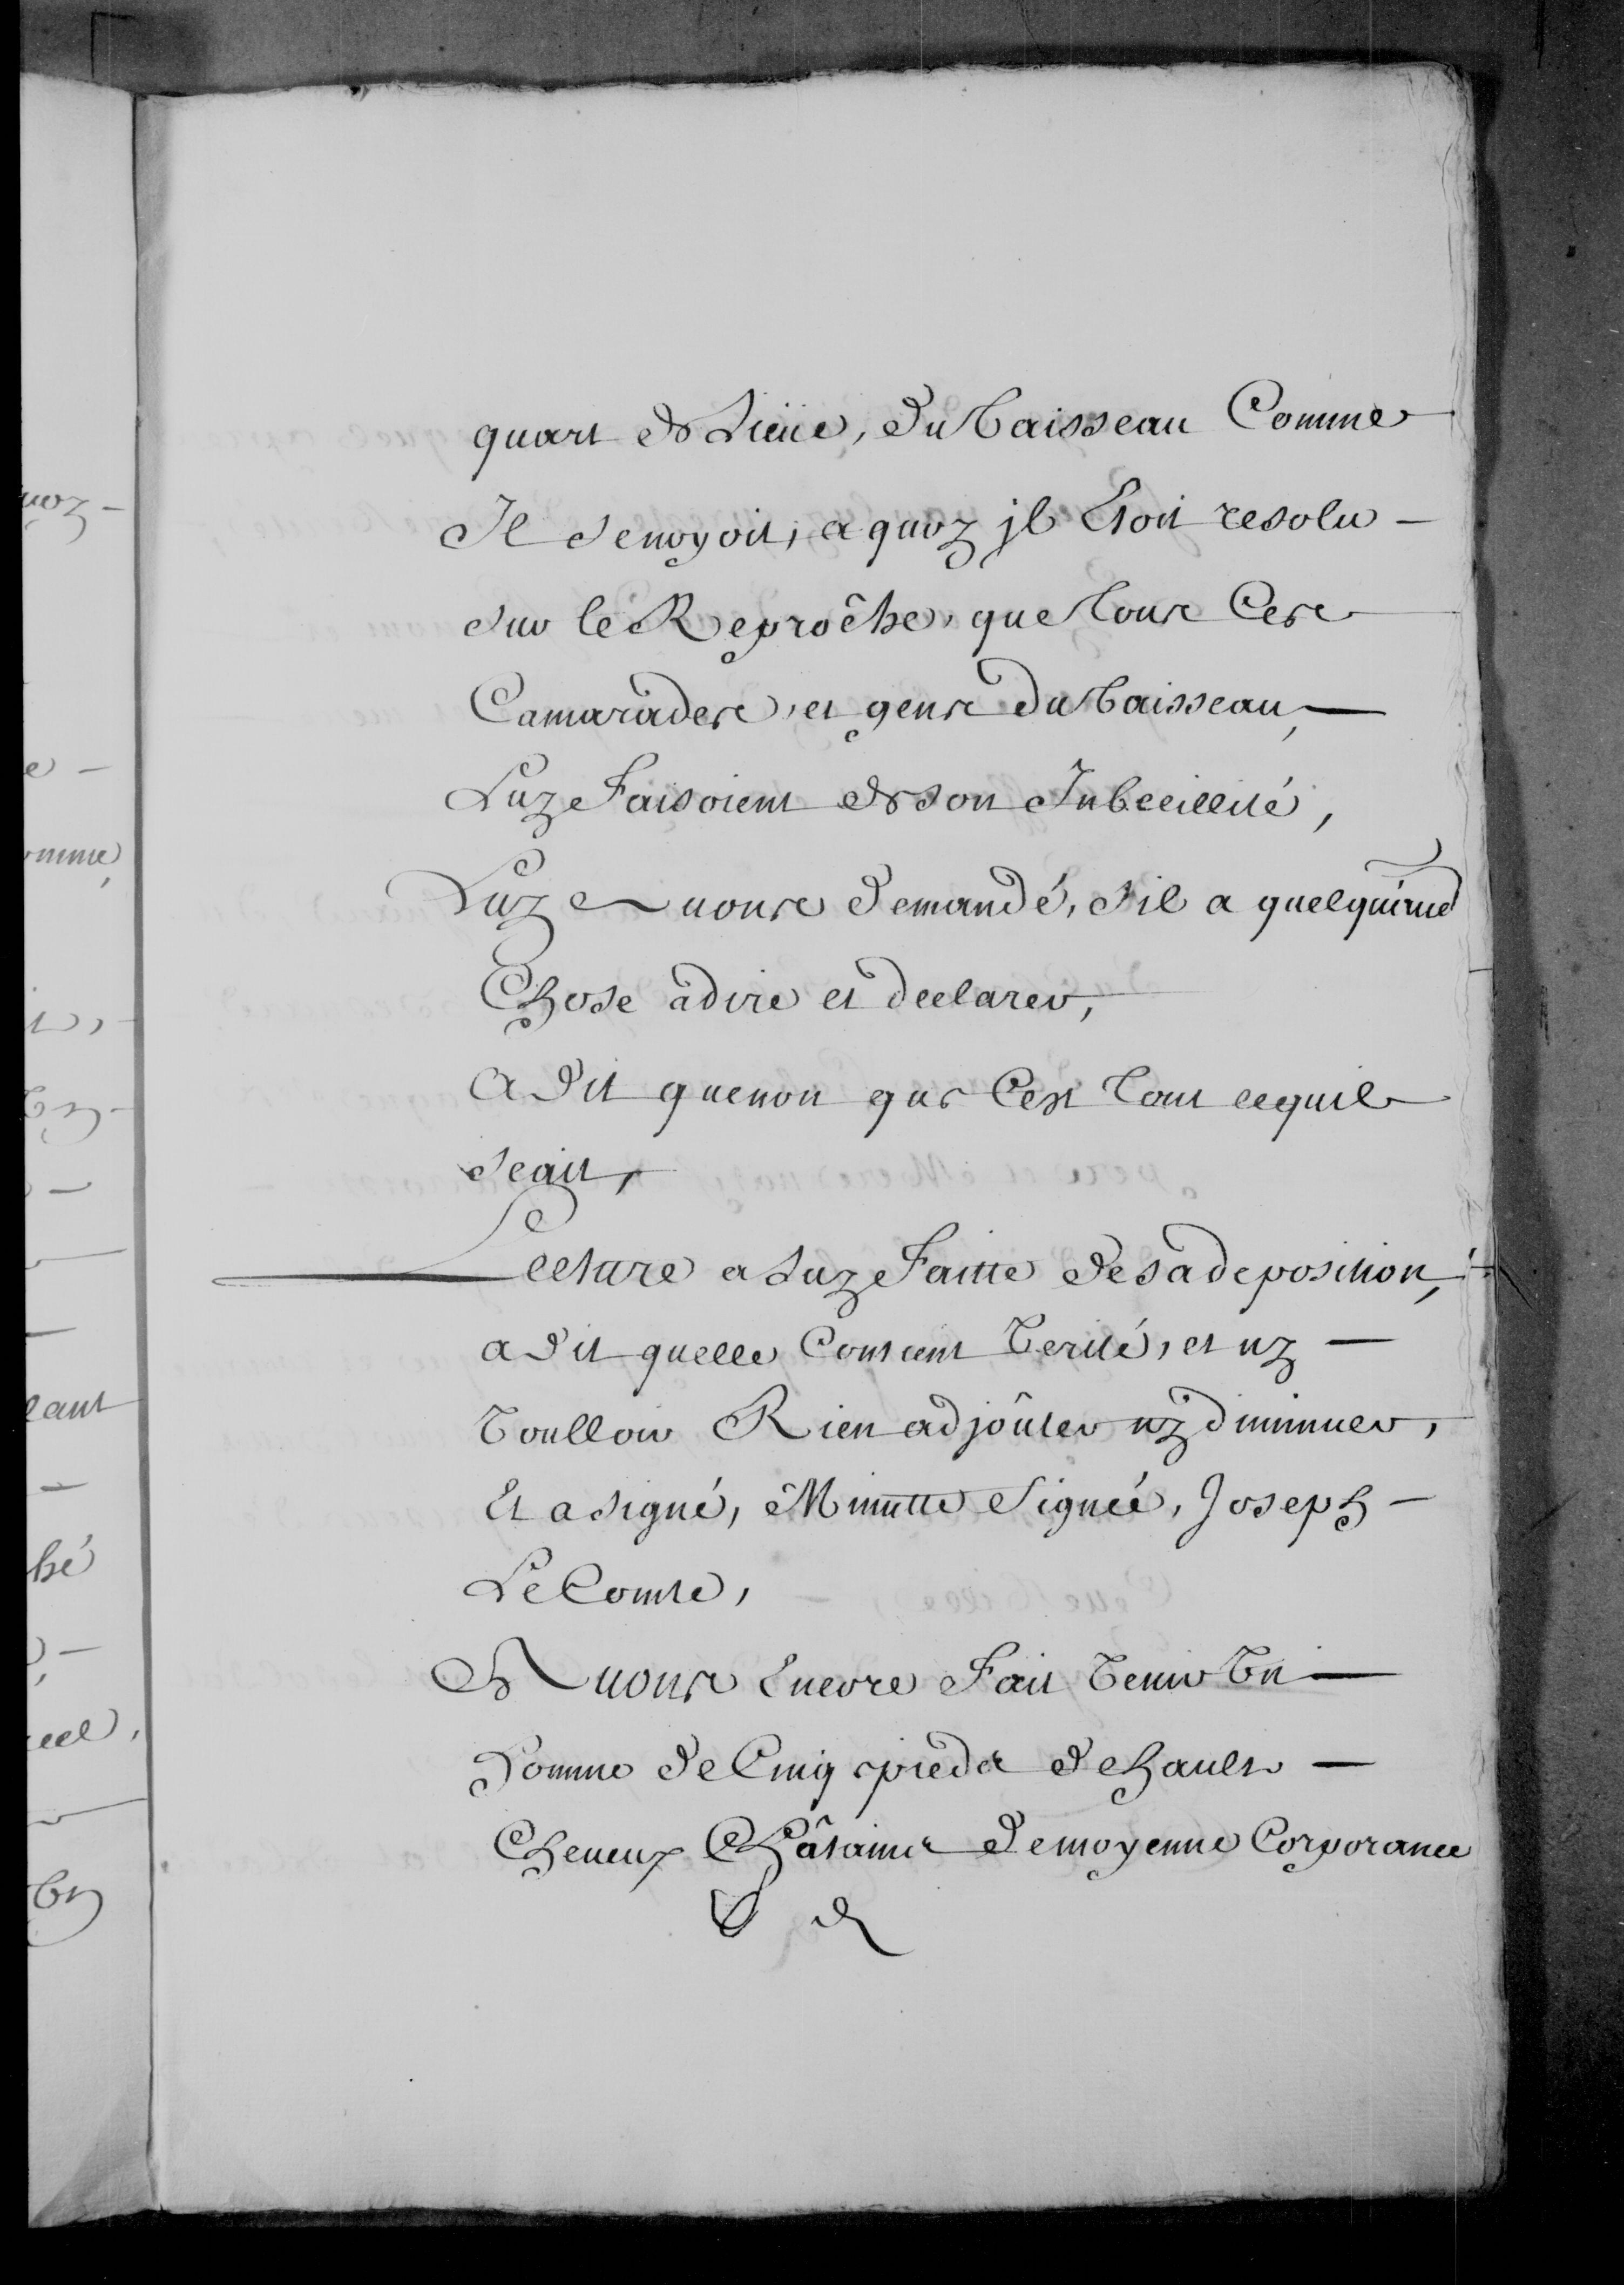 quart de Lieüe, du Vaisseau Comme
Il senoyoit, a quoy jl Etoit resolu
sur le Reprôche, que tous Ces
Camarades, et gens du Vaisseau,
Luy Faisoient de son Inbecillité,
Luy nous demandé, sil a quelqu'une
Chose à dire et declarer,
A dit quenon que Cest tout cequil
scait,
Lecture a Luy Faitte de sa deposition,
a dit quelle Contient Verité, et ny
Voulloir Rien adjoûter ny diminuer,
Et a signé, Minutte Signée, Joseph
Le Comte,
Et nous Encore Fait Venir Un
homme de Cinq pieds de hault
Cheveux Châtains de moyenne Corporance
uoy
omme,
Un
lant
hé
Un